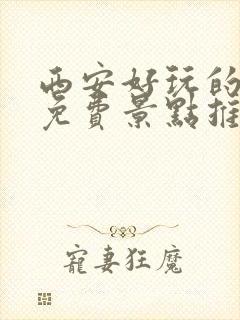 西安好玩的
免費景點推
寵妻狂魔